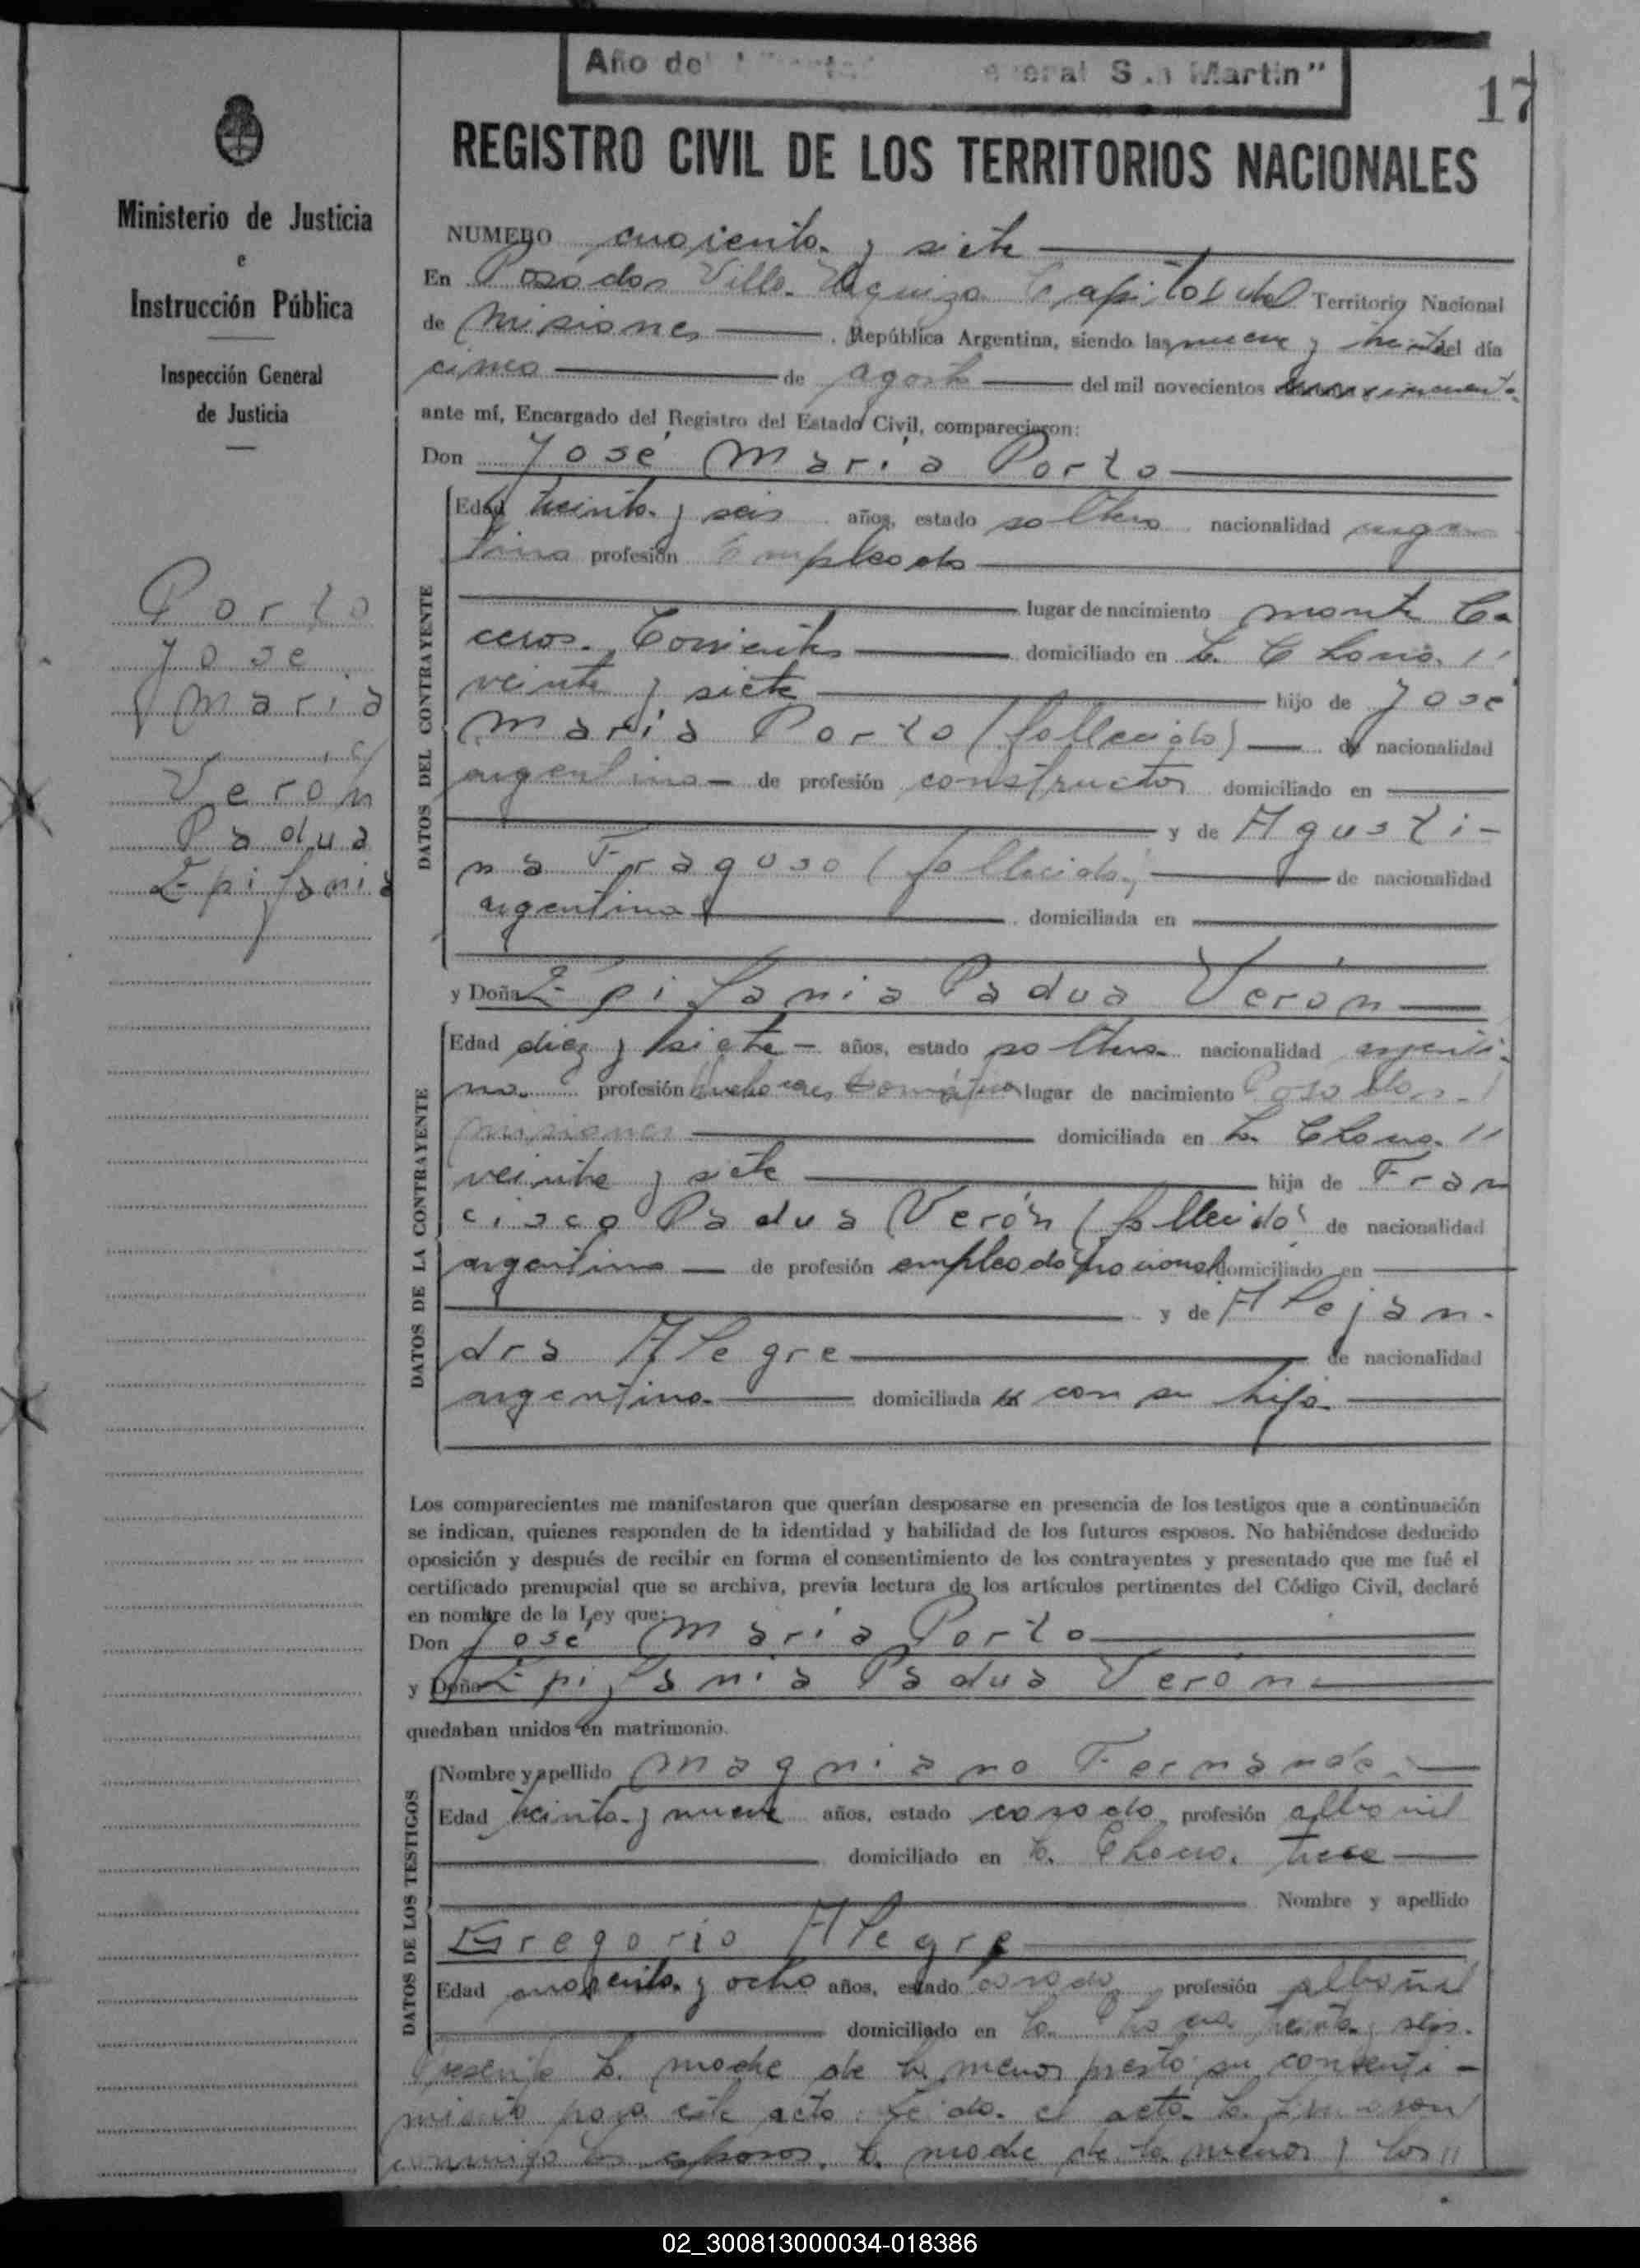 Año del eneral San Martin"
17
REGISTRO CIVIL DE LOS TERRITORIOS NACIONALES
Ministerio de Justicia
e
Instrucción Pública
Inspección General
de Justicia
NUMERO cuarenta y siete
En Posadas Villa Urquiza Capital del Territorio Nacional
de Misiones , República Argentina, siendo las nueve y treinta del día
cinco de agosto del mil novecientos cincuenta
ante mí, Encargado del Registro del Estado Civil, comparecieron:
Don José María Porto
Porto
José
María
c/
Verón
Padua
Epifania
DATOS DEL CONTRAYENTE
Edad treinta y seis años, estado soltero nacionalidad argen
tina profesión Empleado
lugar de nacimiento Monte Ca
seros. Corrientes domiciliado en La Chaca //
veinte y siete hijo de José
María Porto (fallecido) de nacionalidad
argentina de profesión constructor domiciliado en
y de Agusti-
na Fragoso (fallecida) de nacionalidad
argentina domiciliada en
y Doña Epifania Padua Verón
DATOS DE LA CONTRAYENTE
Edad diez y siete años, estado soltera nacionalidad argenti-
na profesión quehaceres domésticos lugar de nacimiento Posadas
Misiones domiciliada en La Chaca //
veinte y siete hija de Fran
cisco Padua Verón (fallecido) de nacionalidad
argentina de profesión empleado nacional domiciliado en
y de Alejan-
dra Alegre de nacionalidad
argentina domiciliada con su hija
Los comparecientes me manifestaron que querían desposarse en presencia de los testigos que a continuación
se indican, quienes responden de la identidad y habilidad de los futuros esposos. No habiéndose deducido
oposición y después de recibir en forma el consentimiento de los contrayentes y presentado que me fué el
certificado prenupcial que se archiva, previa lectura de los artículos pertinentes del Código Civil, declaré
en nombre de la Ley que:
Don José María Porto
y Doña Epifania Padua Verón
quedaban unidos en matrimonio.
DATOS DE LOS TESTIGOS
Nombre y apellido Magniano Fernández
Edad treinta y nueve años, estado casado profesión albañil
domiciliado en La Chaca. trece
Nombre y apellido
Gregorio Alegre
Edad cuarenta y ocho años, estado casado profesión albañil
domiciliado en La Chaca treinta y seis.
Presente la madre de la menor prestó su consenti-
miento para este acto. Leída el acta la firmaron
conmigo los esposos, la madre de la menor y los //
02_300813000034-018386